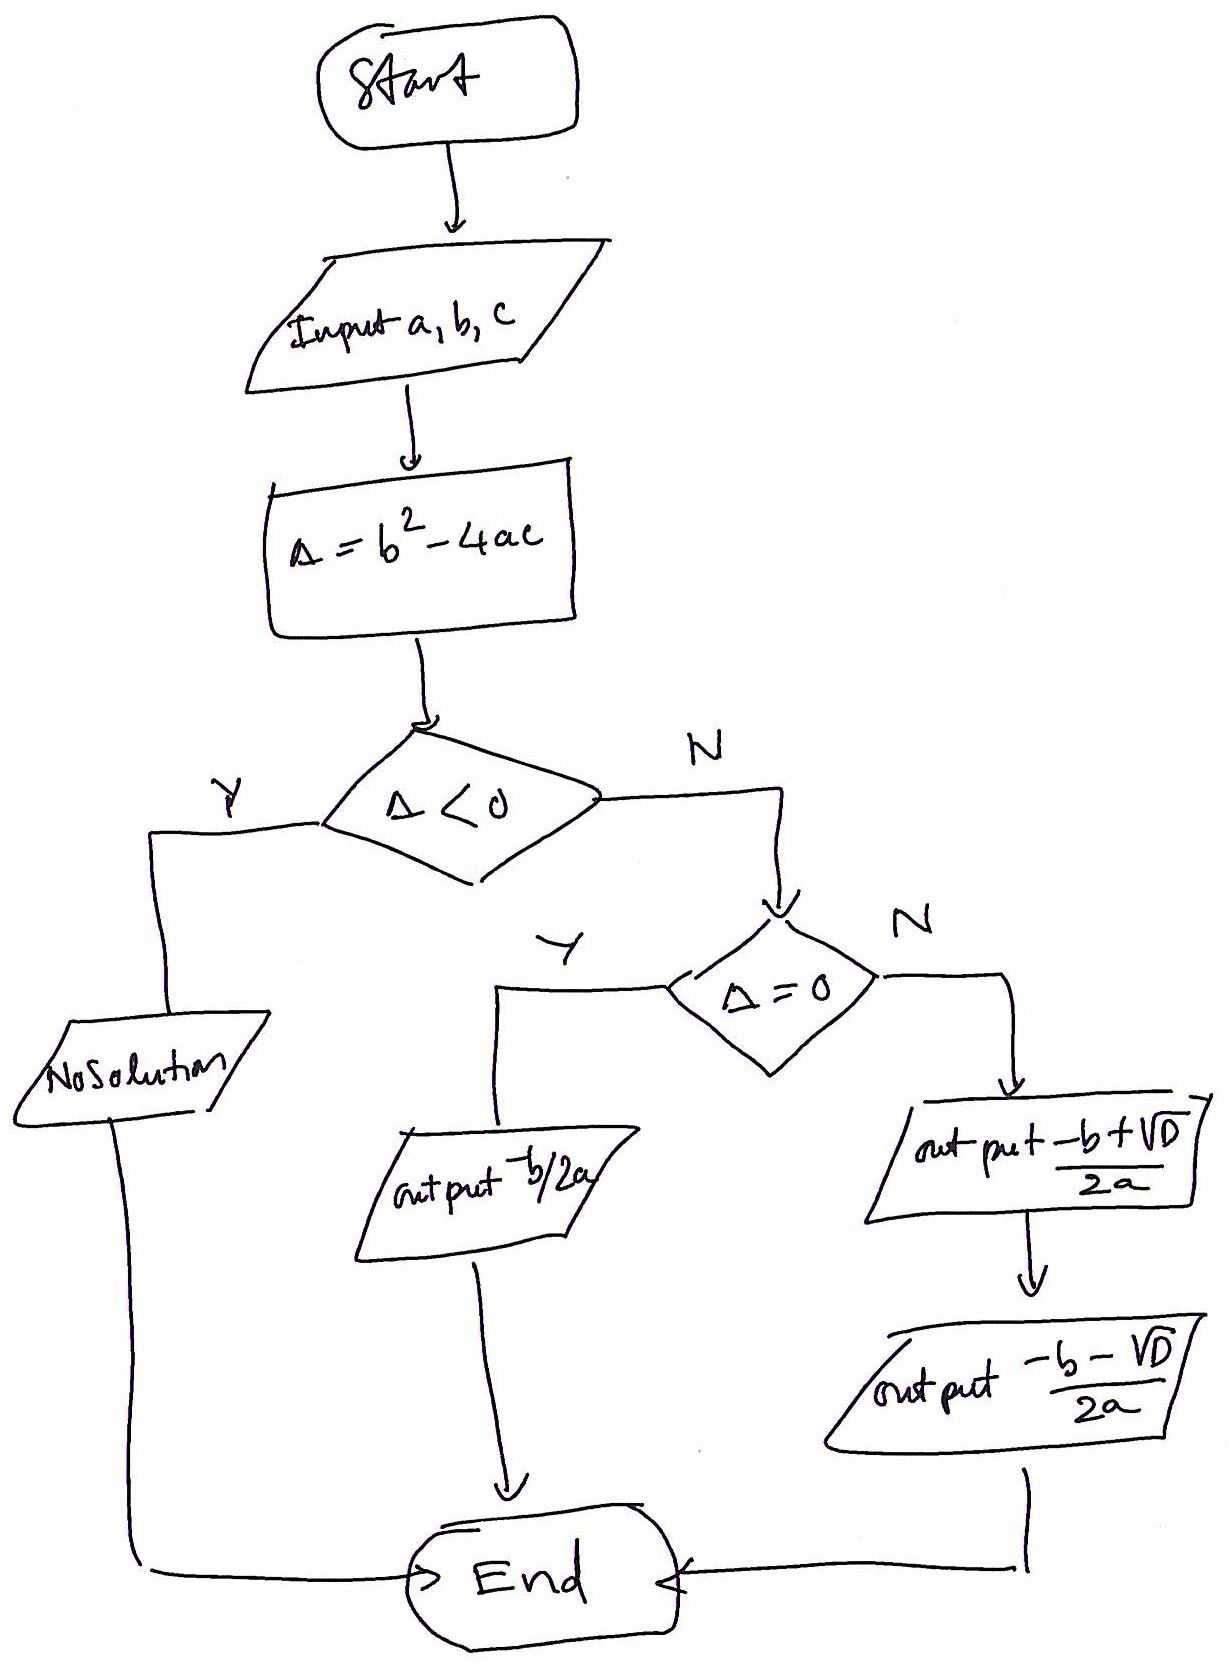 Start
Input a, b, c
Δ = b² - 4ac
Δ < 0
Y
N
Δ = 0
Y
N
No Solution
output -b/2a
output (-b + √D)/2a
output (-b - √D)/2a
End